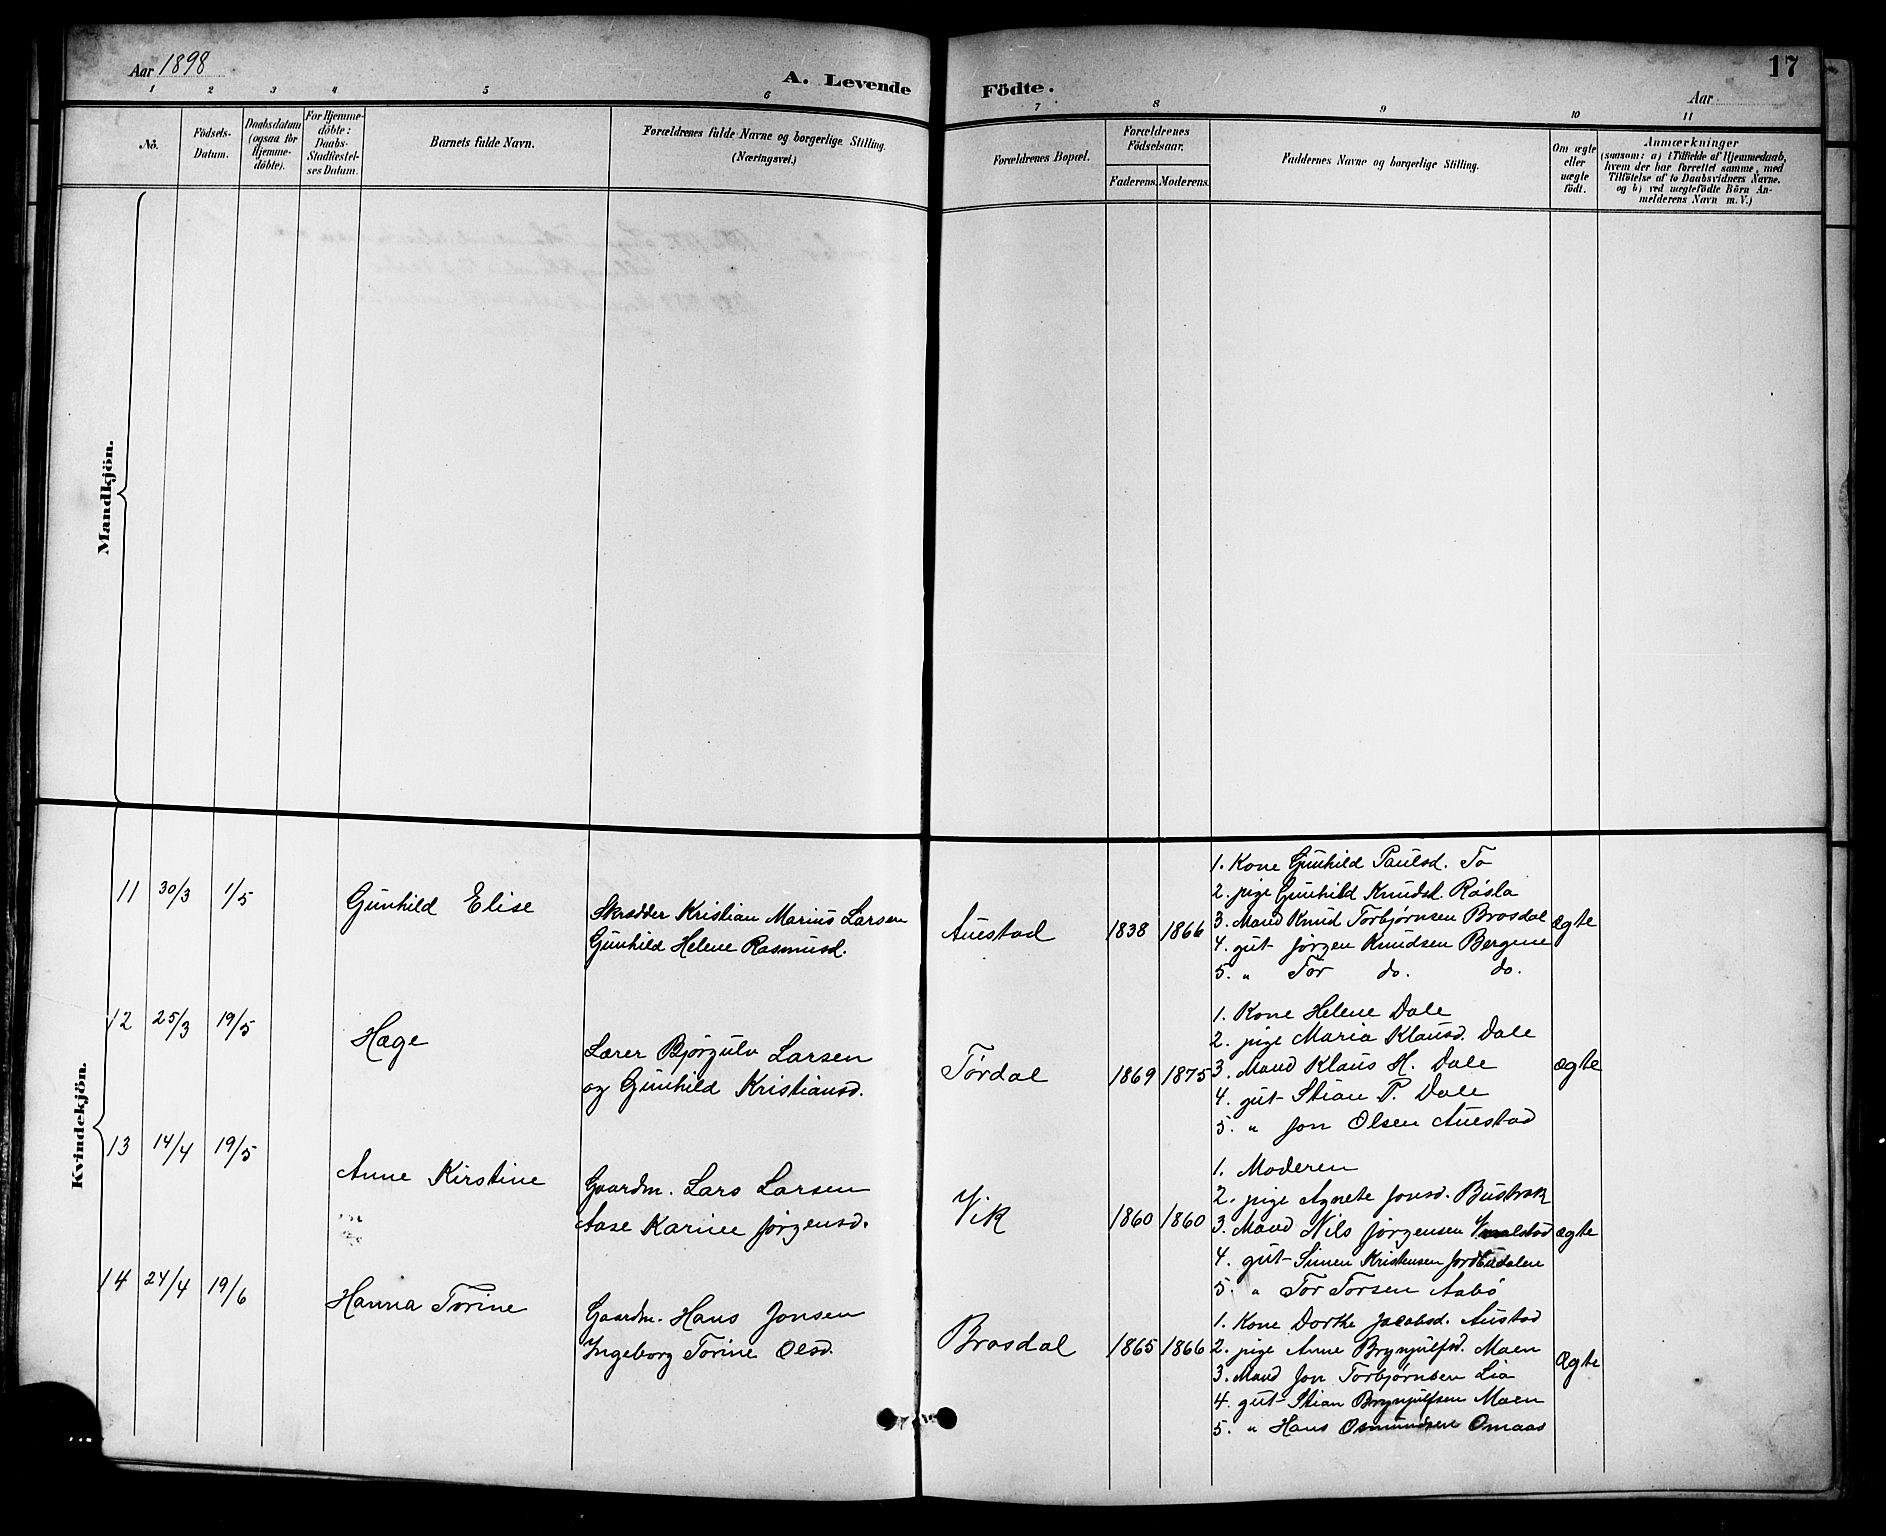 Aar 1898
A. Levende Födte.
17
Aar
1 2 3 4 5 6 7 8 9 10 11
No.
Födsels-
Datum.
Daabsdatum
(ogsaa for
Hjemme-
döbte).
For Hjemme-
döbte:
Daabs-
Stadfæstel-
ses Datum.
Barnets fulde Navn.
Forældrenes fulde Navne og borgerlige Stilling.
(Næringsvei.)
Forældrenes Bopæl.
Forældrenes
Födselsaar.
Faderens. Moderens.
Faddernes Navne og borgerlige Stilling.
Om ægte
eller
uægte
födt.
Anmærkninger
(saasom: a) i Tilfælde af Hjemmedaab,
hvem der har forrettet samme, med
Tilföielse af to Daabsvidners Navne.
og b) ved uægtefödte Börn An-
melderens Navn m. V.)
Mandkjön.
Kvindekjön.
11 30/3 1/5
Gunhild Elise
Skrædder Kristian Marius Larsen
Gunhild Helene Rasmusd.
Auestad
1838 1866
1. Kone Gunhild Paulsd. To
2. pige Gunhild Knudsd. Røsla
3. Mand Knud Torbjørnsen Brosdal
4. gut Jørgen Knudsen Bergene
5. " Tor do. do.
ægte
12 25/3 19/5
Hæge
Lærer Bjørgulv Larsen
og Gunhild Kristiansd.
Tørdal
1869 1875
1. Kone Helene Dale
2. pige Maria Klausd. Dale
3. Mand Klaus H. Dale
4. gut Stian P. Dale
5. " Jon Olsen Auestad
ægte
13 14/4 19/5
Anne Kirstine
Gaardm. Lars Larsen
Aase Karine Jørgensd.
Vik
1860 1860
1. Moderen
2. pige Agnete Jonsd. Bustrak
3. Mand Nils Jørgensen
4. gut Simen Kristensen Jordbudalen
5. " Tor Torsen Aabö
ægte
14 24/4 19/6
Hanna Torine
Gaardm. Hans Jonsen
Ingeborg Torine Olsd.
Brosdal
1865 1866
1. Kone Dorthe Jacobsd. Austad
2. pige Anne Brynjulfsd. Moen
3. Mand Jon Torbjørnsen Lia
4. gut Stian Brynjulfsen Moen
5. " Hans Osmundsen Omaas
Ægte